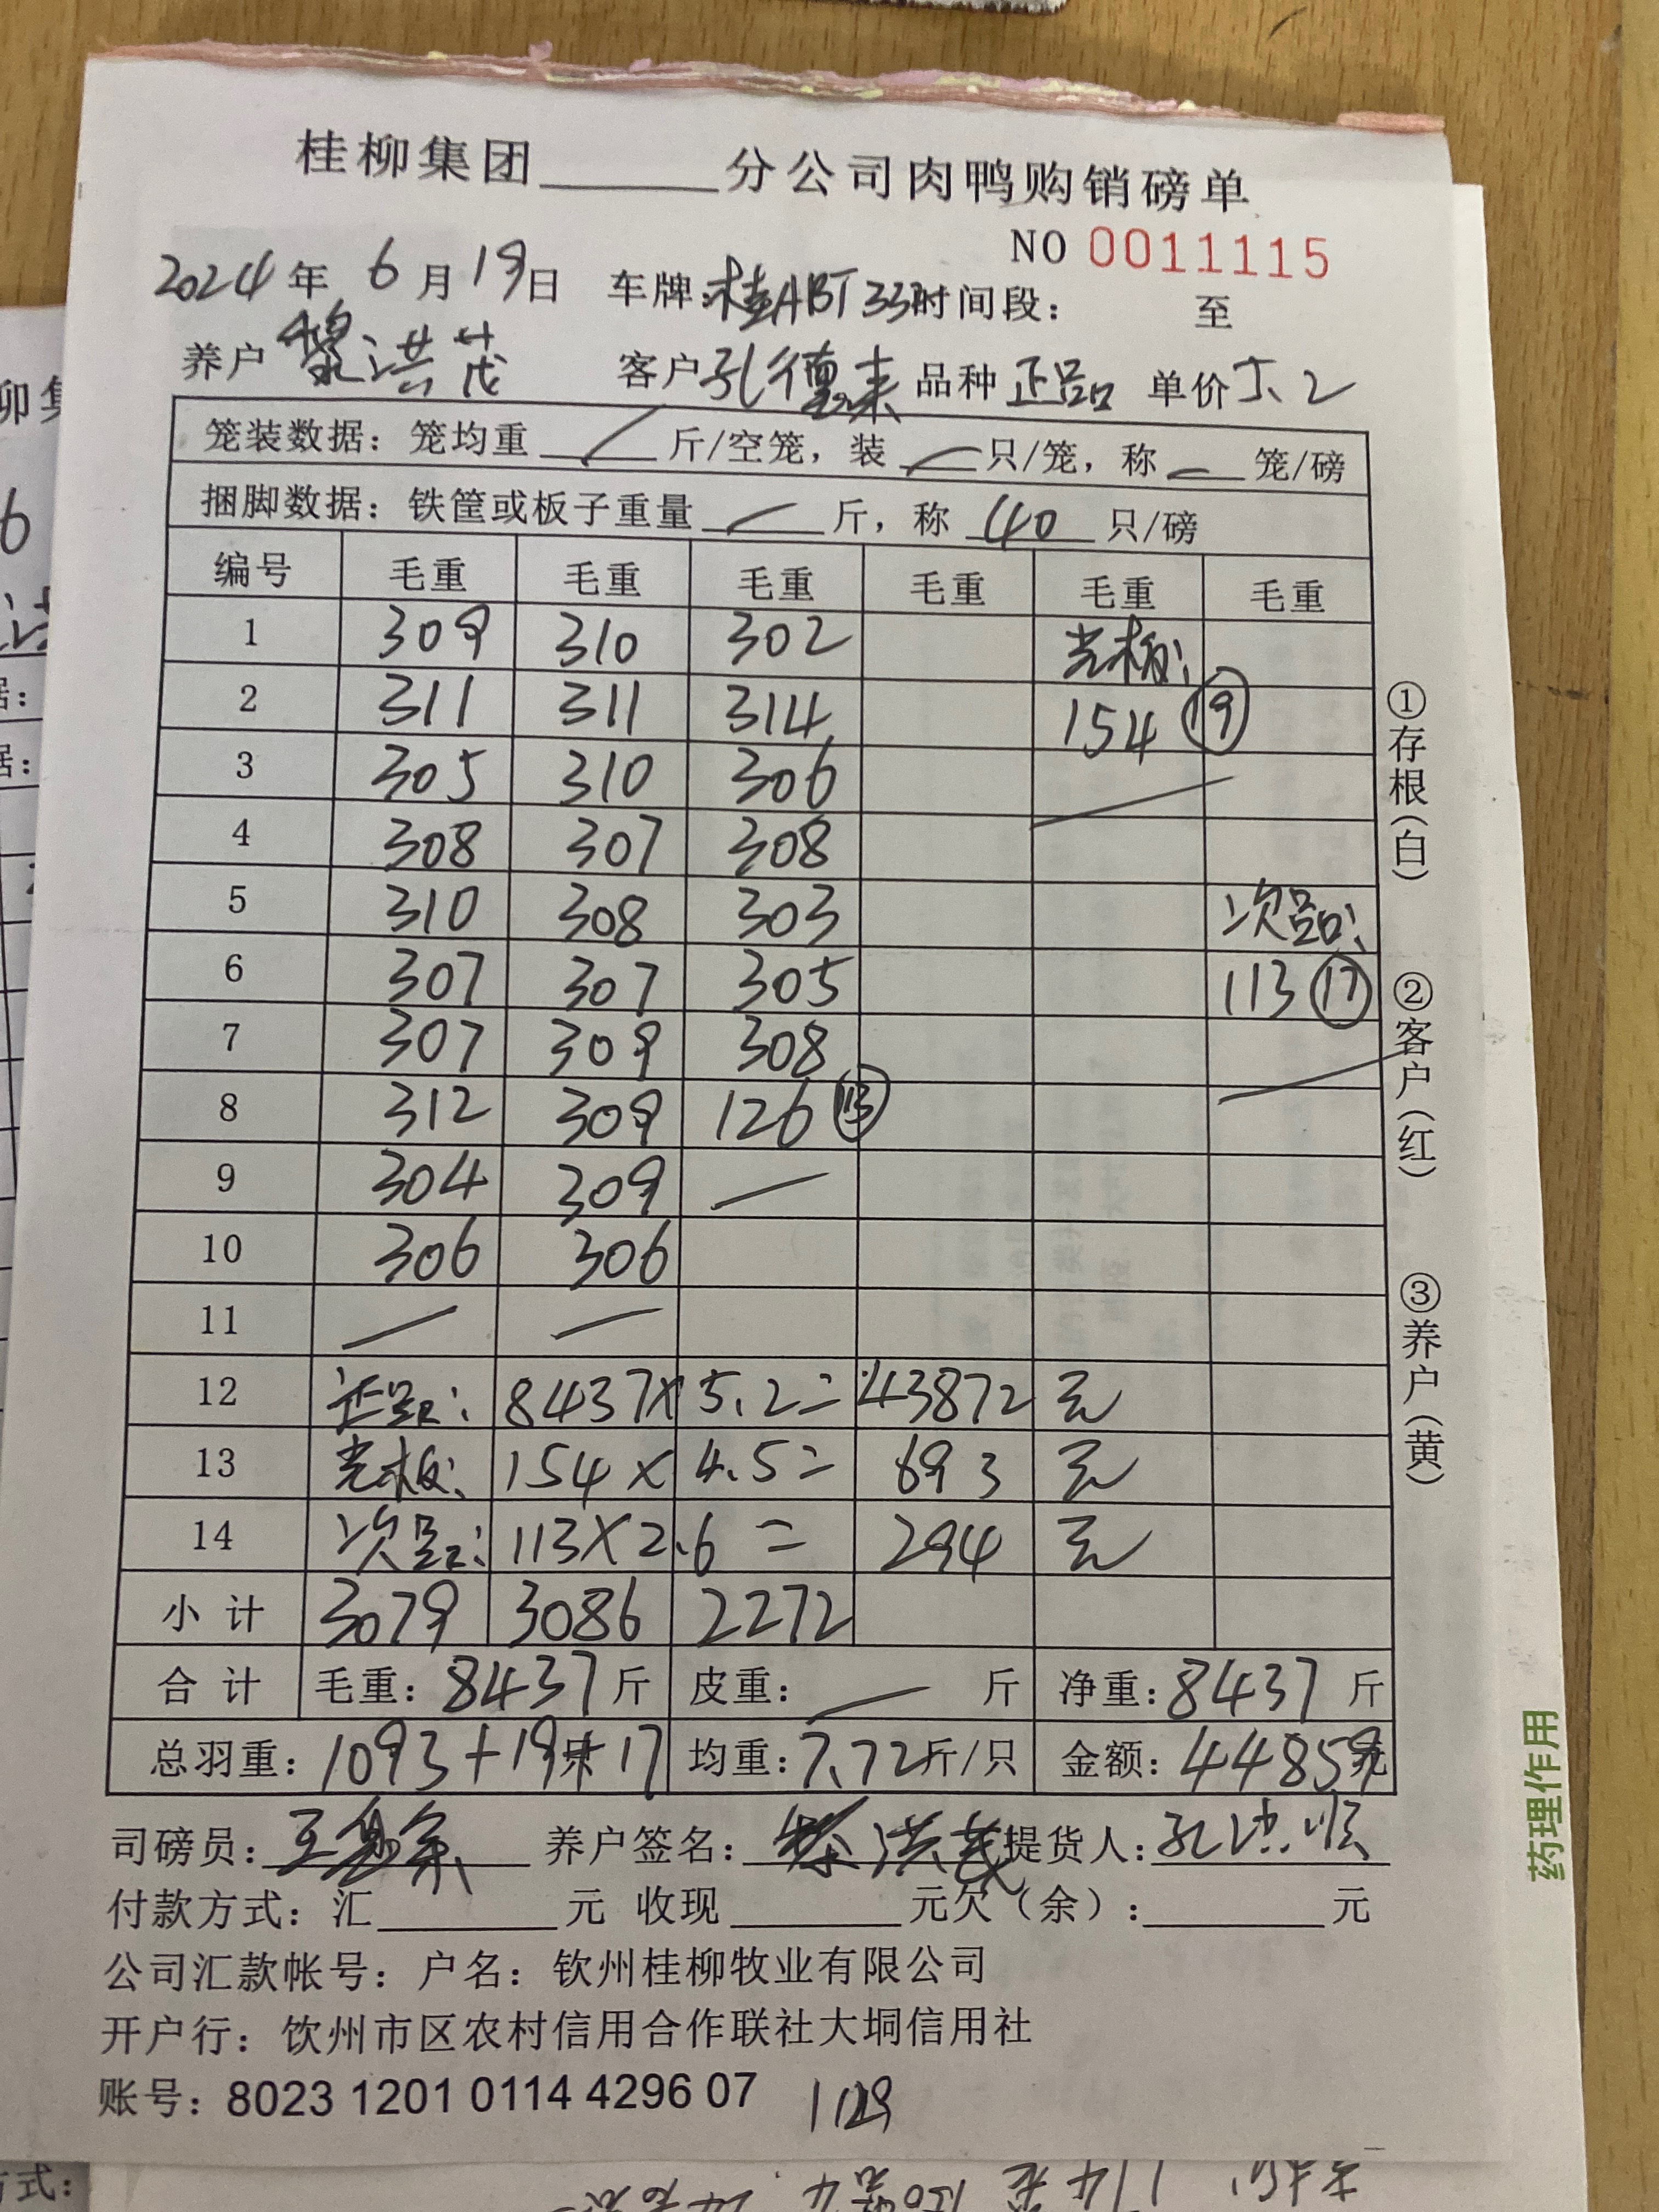 桂柳集团______分公司肉鸭购销磅单
NO 0011115
2024年 6月19日 车牌:桂ABT33 时间段: 至
养户 黎洪茂 客户 孔德来 品种 正品 单价 5.2
笼装数据: 笼均重 / 斤/空笼, 装 / 只/笼, 称 / 笼/磅
捆脚数据: 铁筐或板子重量 / 斤, 称 40 只/磅
编号 毛重 毛重 毛重 毛重 毛重 毛重
1 309 310 302 光板:
2 311 311 314 154 ⑲
3 305 310 306
4 308 307 308
5 310 308 303 次品:
6 307 307 305 113 ⑰
7 307 309 308
8 312 309 126 ⑬
9 304 309 /
10 306 306
11 / /
12 正品: 8437× 5.2= 43872 元
13 光板: 154× 4.5= 693 元
14 次品: 113×2.6 = 294 元
小计 3079 3086 2272
合计 毛重: 8437 斤 皮重: / 斤 净重: 8437 斤
总羽重: 1093+19+17 均重: 7.72斤/只 金额: 44859元
司磅员: 养户签名: 黎洪茂 提货人: 孔德顺
付款方式: 汇______元 收现______元欠(余):______元
公司汇款帐号: 户名: 钦州桂柳牧业有限公司
开户行: 饮州市区农村信用合作联社大垌信用社
账号: 8023 1201 0114 4296 07 1129
①存根(白)
②客户(红)
③养户(黄)
药理作用